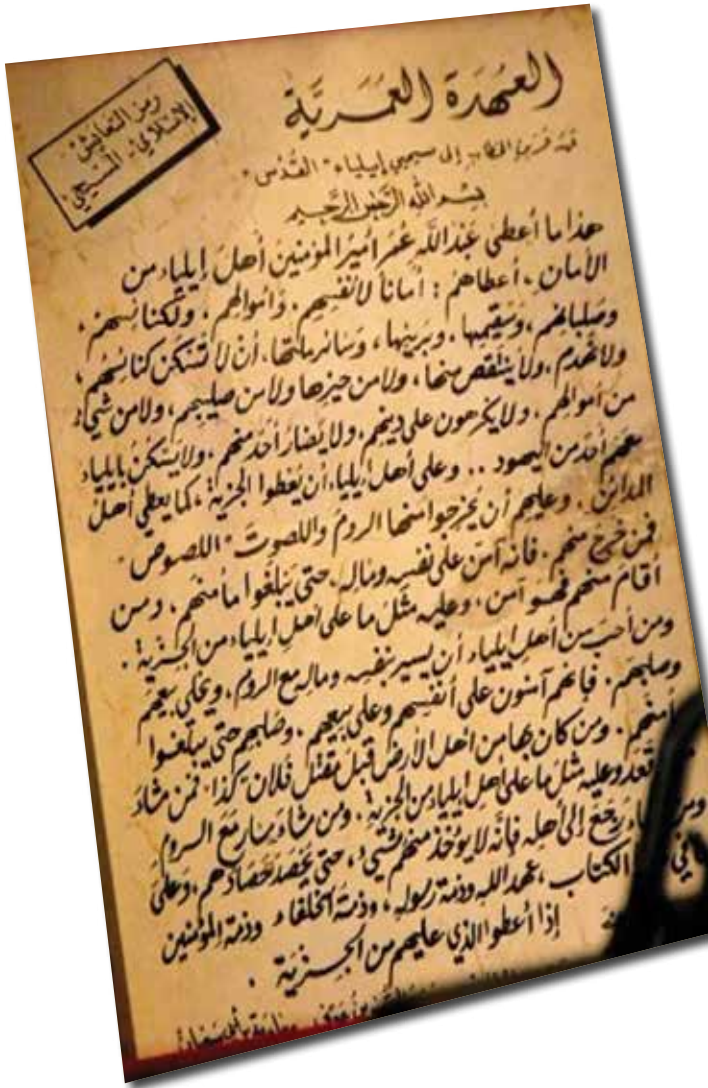 العُهْدَة العُمَريَّة
رمز التعايش
الإسلامي - المسيحي
إلى مسيحيي إيلياء "القُدْس"
بسم الله الرحمن الرحيم
هذا ما أعطى عَبْدُ اللَّهِ عُمَر أميرُ المؤمنين أهلَ إيلياء من
الأمان . أعطاهم : أمانًا لأنفسهم . وأموالهم . ولكنائسهم ،
وصلبانهم ، وسقيمها . وبريئها ، وسائر ملتها . أن لا تُسْكَن كنائسهم ،
ولا تُهدم . ولا يُنتقص منها ، ولا من حيزها ولا من صليبهم ، ولا من شيء
من أموالهم . ولا يكرهون على دينهم . ولا يُضارَّ أحدٌ منهم ، ولا يَسْكُنُ بإيلياء
معهم أحدٌ من اليهود .. وعلى أهل إيلياء أن يُعْطوا الجزية ، كما يعطي أهل
المدائن . وعليهم أن يُخرجوا منها الروم واللصوت "اللصوص"
فمن خرج منهم . فإنه آمن على نفسه وماله ، حتى يَبْلُغوا مأمنهم ، ومن
أقام منهم فهو آمن ، وعليه مثل ما على أهل إيلياء من الجزية .
ومن أحبَّ من أهل إيلياء أن يسير بنفسه وماله مع الروم ، ويخلي بيعهم
وصلبهم . فإنهم آمنون على أنفسهم وعلى بيعهم ، وصلبهم حتى يبلغوا
مأمنهم . ومن كان بها من أهل الأرض قبل مقتل فلان "كذا" فمن شاء
قعد وعليه مثل ما على أهل إيلياء من الجزية . ومن شاء سار مع الروم
ومن شاء رجع إلى أهله فإنَّه لا يؤخذ منهم شيء ، حتى يحصد حصادهم ، وعلى
ما في الكتاب ، عهد الله وذمة رسوله ، وذمة الخلفاء وذمة المؤمنين
إذا أعطوا الذي عليهم من الجزية .